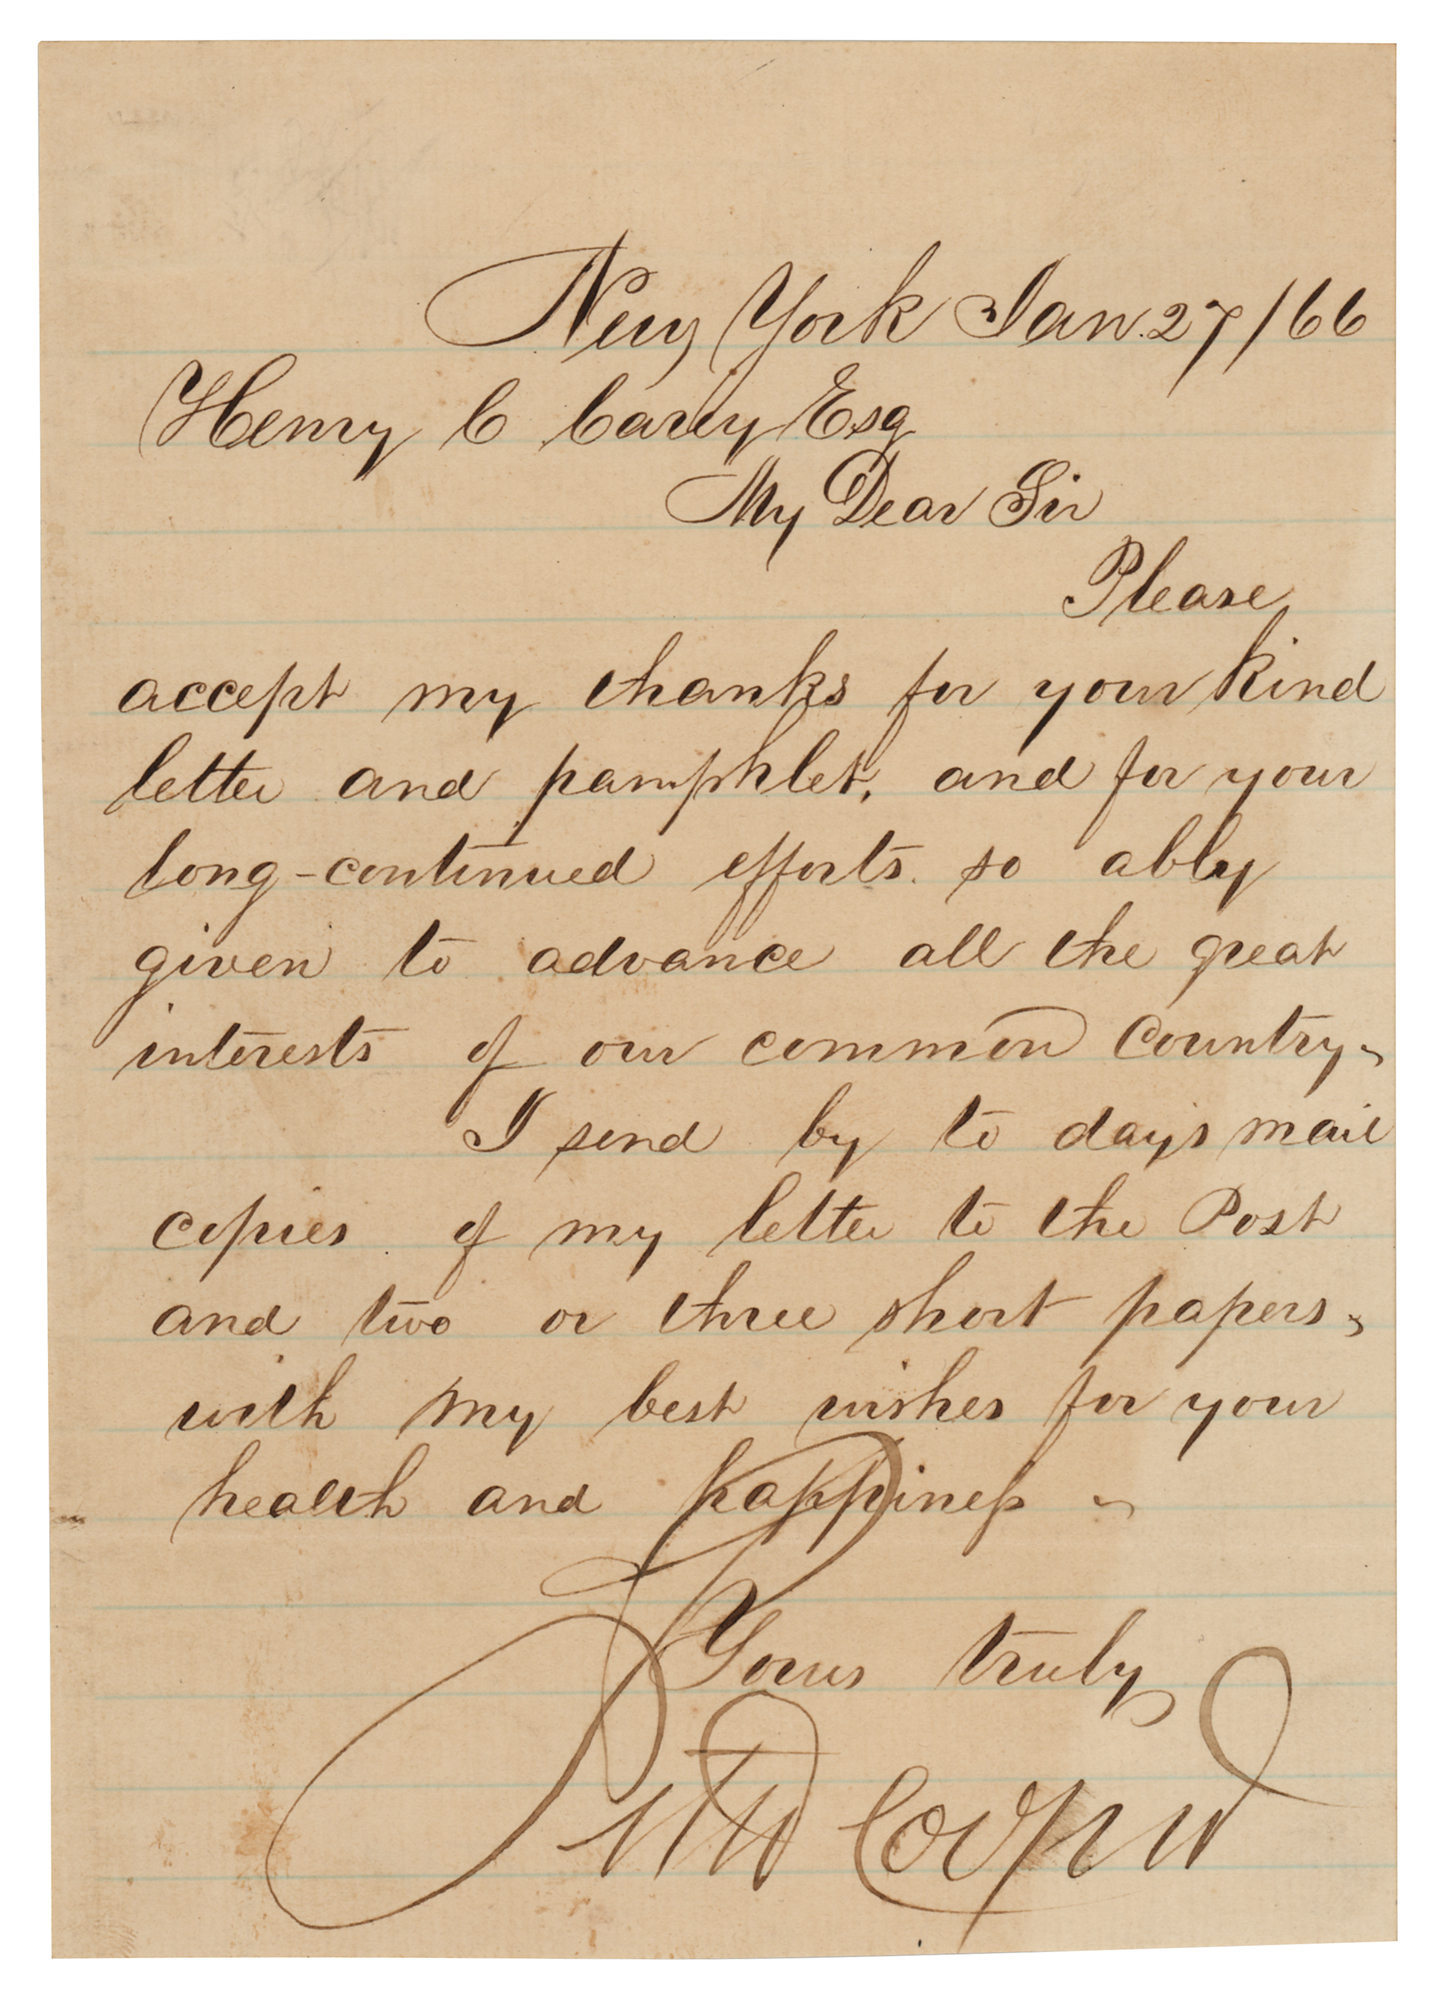 New York Jan. 27/66
Henry C Carey Esq
My Dear Sir
Please
accept my thanks for your kind
letter and pamphlet, and for your
long-continued efforts so ably
given to advance all the great
interests of our common Country.
I send by to days mail
copies of my letter to the Post
and two or three short papers,
with my best wishes for your
health and happiness
Yours truly
Peter Cooper